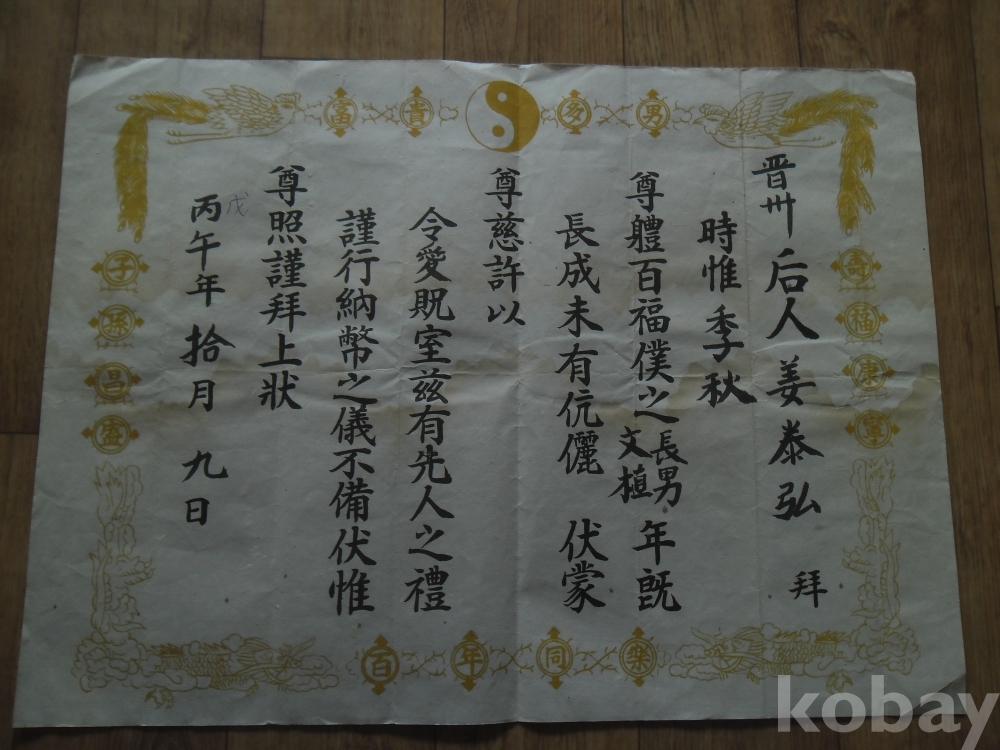 晋卅 后人 姜泰弘 拜
時惟 季秋
尊軆百福僕之 長男 文植 年既
長成未有伉儷 伏蒙
尊慈許以
令愛貺室茲有先人之禮
謹行納幣之儀不備伏惟
尊照謹拜上狀
丙午年 拾月 九日
戊
富貴 多男
壽福康寧
子孫昌盛
百年同樂
kobay